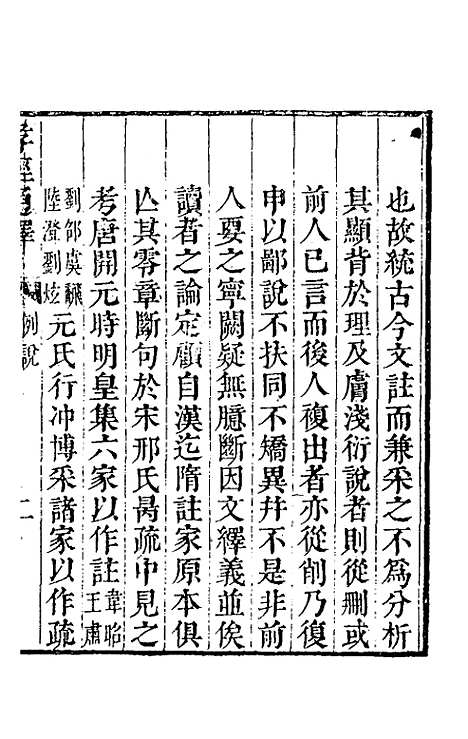 也故統古今文註而兼采之不爲分析
其顯背於理及膚淺衍說者則從刪或
前人已言而後人複出者亦從削乃復
申以鄙說不扶同不矯異幷不是非前
人要之寧闕疑無臆斷因文繹義並俟
讀者之論定顧自漢迄隋註家原本俱
亾其零章斷句於宋邢氏昺疏中見之
考唐開元時明皇集六家以作註韋昭王肅
劉邵虞翻陸澄劉炫元氏行冲博采諸家以作疏
孝經通釋
例說
二